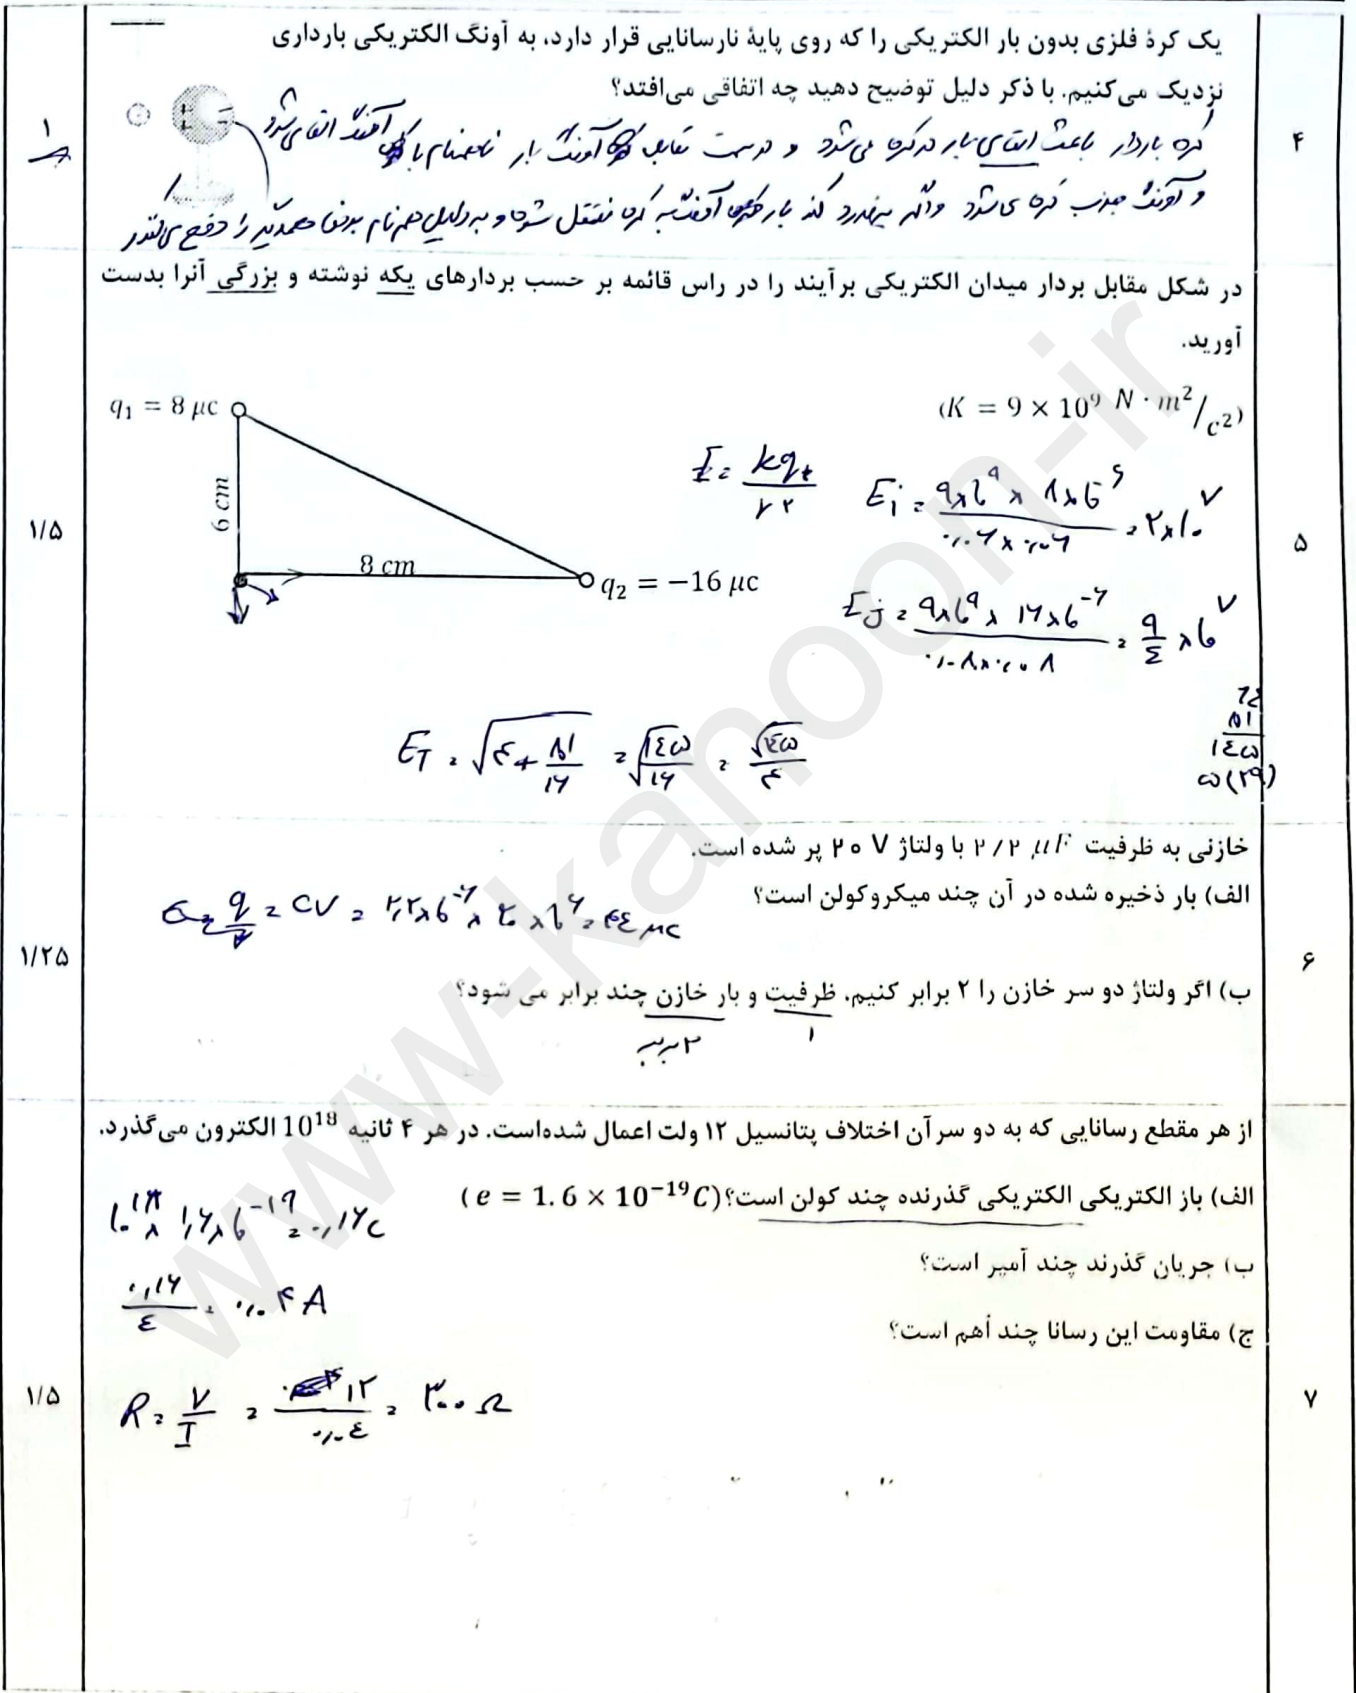 یک کرهٔ فلزی بدون بار الکتریکی را که روی پایهٔ نارسانایی قرار دارد، به آونگ الکتریکی بارداری
نزدیک می‌کنیم. با ذکر دلیل توضیح دهید چه اتفاقی می‌افتد؟
۴
۱
کره باردار باعث القای بار در کره می‌شود و در سمت مقابل آونگ بار ناهمنام با آونگ القا می‌شود
و آونگ جذب کره می‌شود و اگر برخورد کند بار آونگ به کره منتقل شود و به دلیل هم نام بودن همدیگر را دفع می‌کنند
در شکل مقابل بردار میدان الکتریکی برآیند را در راس قائمه بر حسب بردارهای یکه نوشته و بزرگی آنرا بدست
آورید.
(K = 9 × 10⁹ N · m²/c²)
q₁ = 8 μc
6 cm
8 cm
q₂ = −16 μc
۱/۵
۵
E = kq/r²
Ei = ۹×۱۰^۹ × ۸×۱۰^-۶ / ۰/۰۶×۰/۰۶ = ۲×۱۰^۷
Ej = ۹×۱۰^۹ × ۱۶×۱۰^-۶ / ۰/۰۸×۰/۰۸ = ۹/۴ ×۱۰^۷
E_T = √(۴+۸۱/۱۶) = √(۱۴۵/۱۶) = √۱۴۵/۴
۶۴
۸۱
۱۴۵
۵(۲۹)
خازنی به ظرفیت ۲/۲ μF با ولتاژ ۲۰ V پر شده است.
الف) بار ذخیره شده در آن چند میکروکولن است؟
q = CV = ۲,۲×۱۰^-۶ × ۲۰ × ۱۰^۶ = ۴۴ μc
۱/۲۵
۶
ب) اگر ولتاژ دو سر خازن را ۲ برابر کنیم. ظرفیت و بار خازن چند برابر می شود؟
۱
۲ برابر
از هر مقطع رسانایی که به دو سر آن اختلاف پتانسیل ۱۲ ولت اعمال شده‌است. در هر ۴ ثانیه 10¹⁸ الکترون می‌گذرد.
الف) باز الکتریکی الکتریکی گذرنده چند کولن است؟(e = 1.6 × 10⁻¹⁹C)
۱۰^۱۸ × ۱,۶×۱۰^-۱۹ = ۰,۱۶ C
ب) جریان گذرند چند آمپر است؟
۰,۱۶/۴ = ۰/۰۴ A
ج) مقاومت این رسانا چند اُهم است؟
R = V/I = ۱۲/۰/۰۴ = ۳۰۰ Ω
۱/۵
۷
www-kanoon-ir